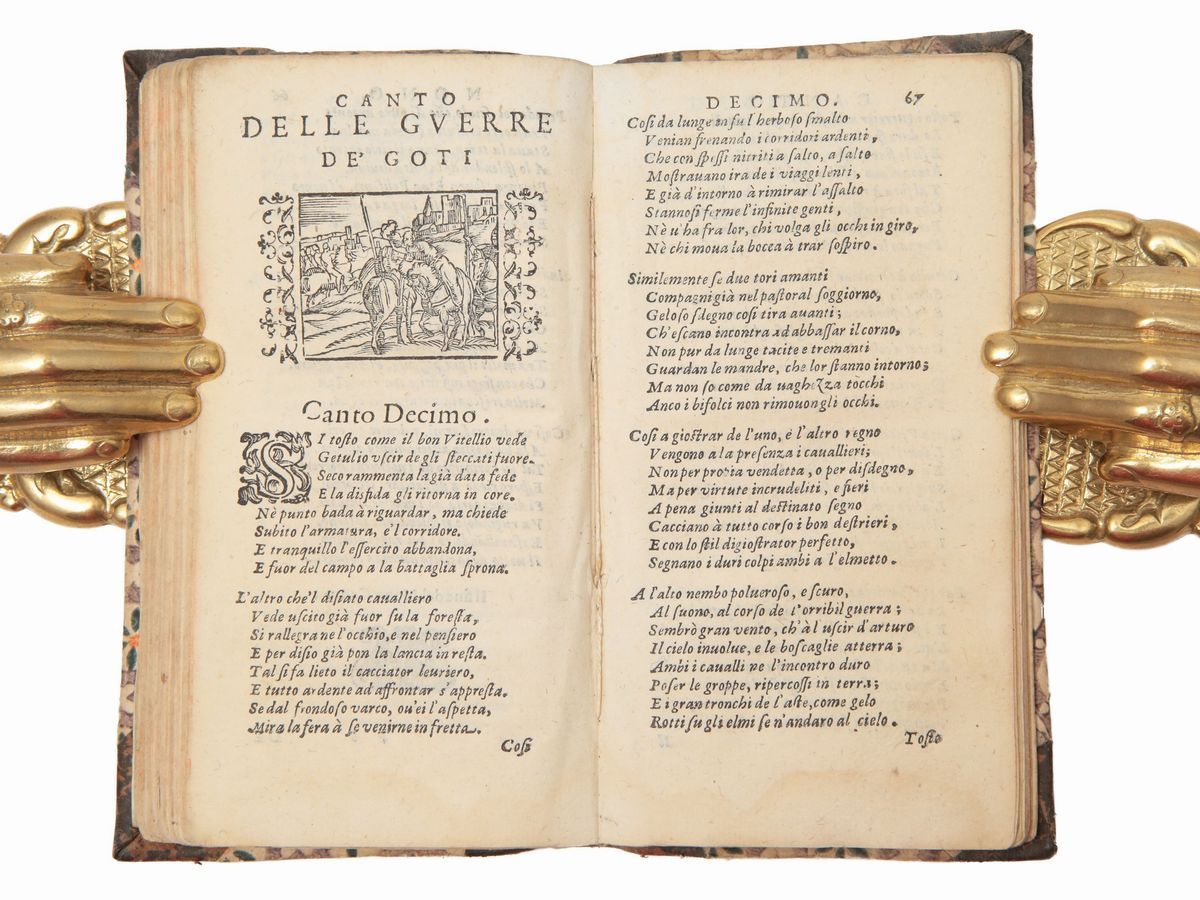 CANTO
DELLE GVERRE
DE' GOTI
Canto Decimo.
SI tosto come il bon Vitellio vede
Getulio vscir de gli steccati fuore.
Seco rammenta la già data fede
E la disfida gli ritorna in core.
Nè punto bada à riguardar, ma chiede
Subito l'armatura, e'l corridore.
E tranquillo l'essercito abbandona,
E fuor del campo a la battaglia sprona.
L'altro che'l disiato caualliero
Vede uscito già fuor su la foresta,
Si rallegra ne l'occhio, e nel pensiero
E per disio già pon la lancia in resta.
Tal si fa lieto il cacciator leuriero,
E tutto ardente ad affrontar s'appresta.
Se dal frondoso varco, ou'ei l'aspetta,
Mira la fera à se venirne in fretta.
Cosi
DECIMO. 67
Cosi da lunge in su l'herboso smalto
Venian frenando i corridori ardenti,
Che con spessi nitriti a salto, a salto
Mostrauano ira de i viaggi lenti,
E già d'intorno à rimirar l'assalto
Stannosi ferme l'infinite genti,
Nè u'ha fra lor, chi volga gli occhi in giro,
Nè chi moua la bocca à trar sospiro.
Similemente se due tori amanti
Compagni già nel pastoral soggiorno,
Geloso sdegno cosi tira auanti;
Ch'escano incontra ad abbassar il corno,
Non pur da lunge tacite e tremanti
Guardan le mandre, che lor stanno intorno;
Ma non so come da uaghezza tòcchi
Anco i bifolci non rimouon gli occhi.
Cosi a giostrar de l'uno, e l'altro regno
Vengono a la presenza i cauallieri;
Non per propia vendetta, o per disdegno,
Ma per virtute incrudeliti, e fieri
A pena giunti al destinato segno
Cacciano à tutto corso i bon destrieri,
E con lo stil di giostrator perfetto,
Segnano i duri colpi ambi a l'elmetto.
A l'alto nembo polueroso, e scuro,
Al suono, al corso de l'orribil guerra;
Sembrò gran vento, ch'à l uscir d'arturo
Il cielo inuolue, e le boscaglie atterra;
Ambi i caualli ne l'incontro duro
Poser le groppe, ripercossi in terra;
E i gran tronchi de l'aste, come gelo
Rotti su gli elmi se n'andaro al cielo.
Tosto